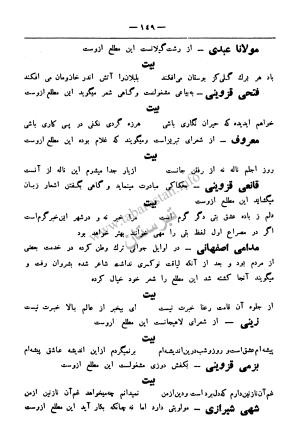 — ١٤٩ —
مولانا عبدی — از رشت گیلانست این مطلع ازوست
بیت
باد هر برك گلی کز بوستان می‌افکند   بلبلان را آتش اندر خانومان می افکند
فتحی قزوینی — به‌بیاعی مشغولست و گاهی شعر میگوید این مطلع ازوست
بیت
خواهم ایدیده که حیران نگاری باشی   هرزه گردی نکنی در پی کاری باشی
معروف — از شعرای تبریز است و میگویند که غلام بوده این مطلع ازوست
بیت
روز اجلم ناله نه از رفتن جانست   از یار جدا میشوم این ناله از آنست
قانعی قزوینی — بحکاکی مبادرت مینماید و گاهی گفتن اشعار زبان
میگشاید این مطلع ازوست
دلم ز باده عشق بتی دگر گرم است   را خبر نه و در شهر این خبر گرم است
اگر در مصراع اول لفظ بتی را مهی خوانند بهتر خواهد بود
مدامی اصفهانی — در اوایل جوانی ترك وطن کرده در خدمت بعضی
از مردم بود و بعد از آنکه لیاقت نوکری نداشت شاعر شده بشروان رفت و
میگویند آنجا کشته شد این مطلع را شعر خود خیال کرده
بیت
از جلوه آن قامت رعنا خبرت نیست   ای بیخبر از عالم بالا خبرت نیست
زینی — از شعرای لاهیجانست این مطلع ازوست
بیت
پیشه‌ام عشق است و روز و شب درین اندیشه‌ام   بر نمیگردم از این اندیشه عاشق پیشه‌ام
بزمی قزوینی — بکفش دوزی مشغولست این مطلع ازوست
بیت
غم آن نازنین دارم که دل برده است و دین از من   نمیدانم چه میخواهد غم آن نازنین از من
شهی شیرازی — مولویتی دارد اما نه چنانکه بکار آید این مطلع ازوست